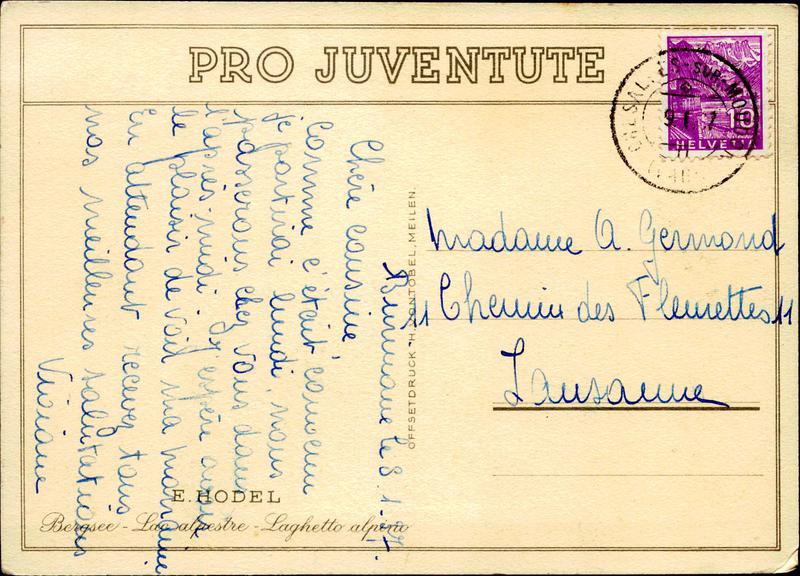 PRO JUVENTUTE
SUR-MOUDON
9 I
10
HELVETIA
Madame A. Germond
11 Chemin des Fleurettes 11
Lausanne
OFFSETDRUCK H. VONTOBEL, MEILEN.
le 8. 1.
Chère cousine,
Comme c'était convenu
je partirai lundi, nous
passerons chez vous dans
l'après-midi. J'espère avoir
le plaisir de voir ma marraine
En attendant recevez tous
nos meilleures salutations
Viviane
E. HODEL
Bergsee - Lac alpestre - Laghetto alpino